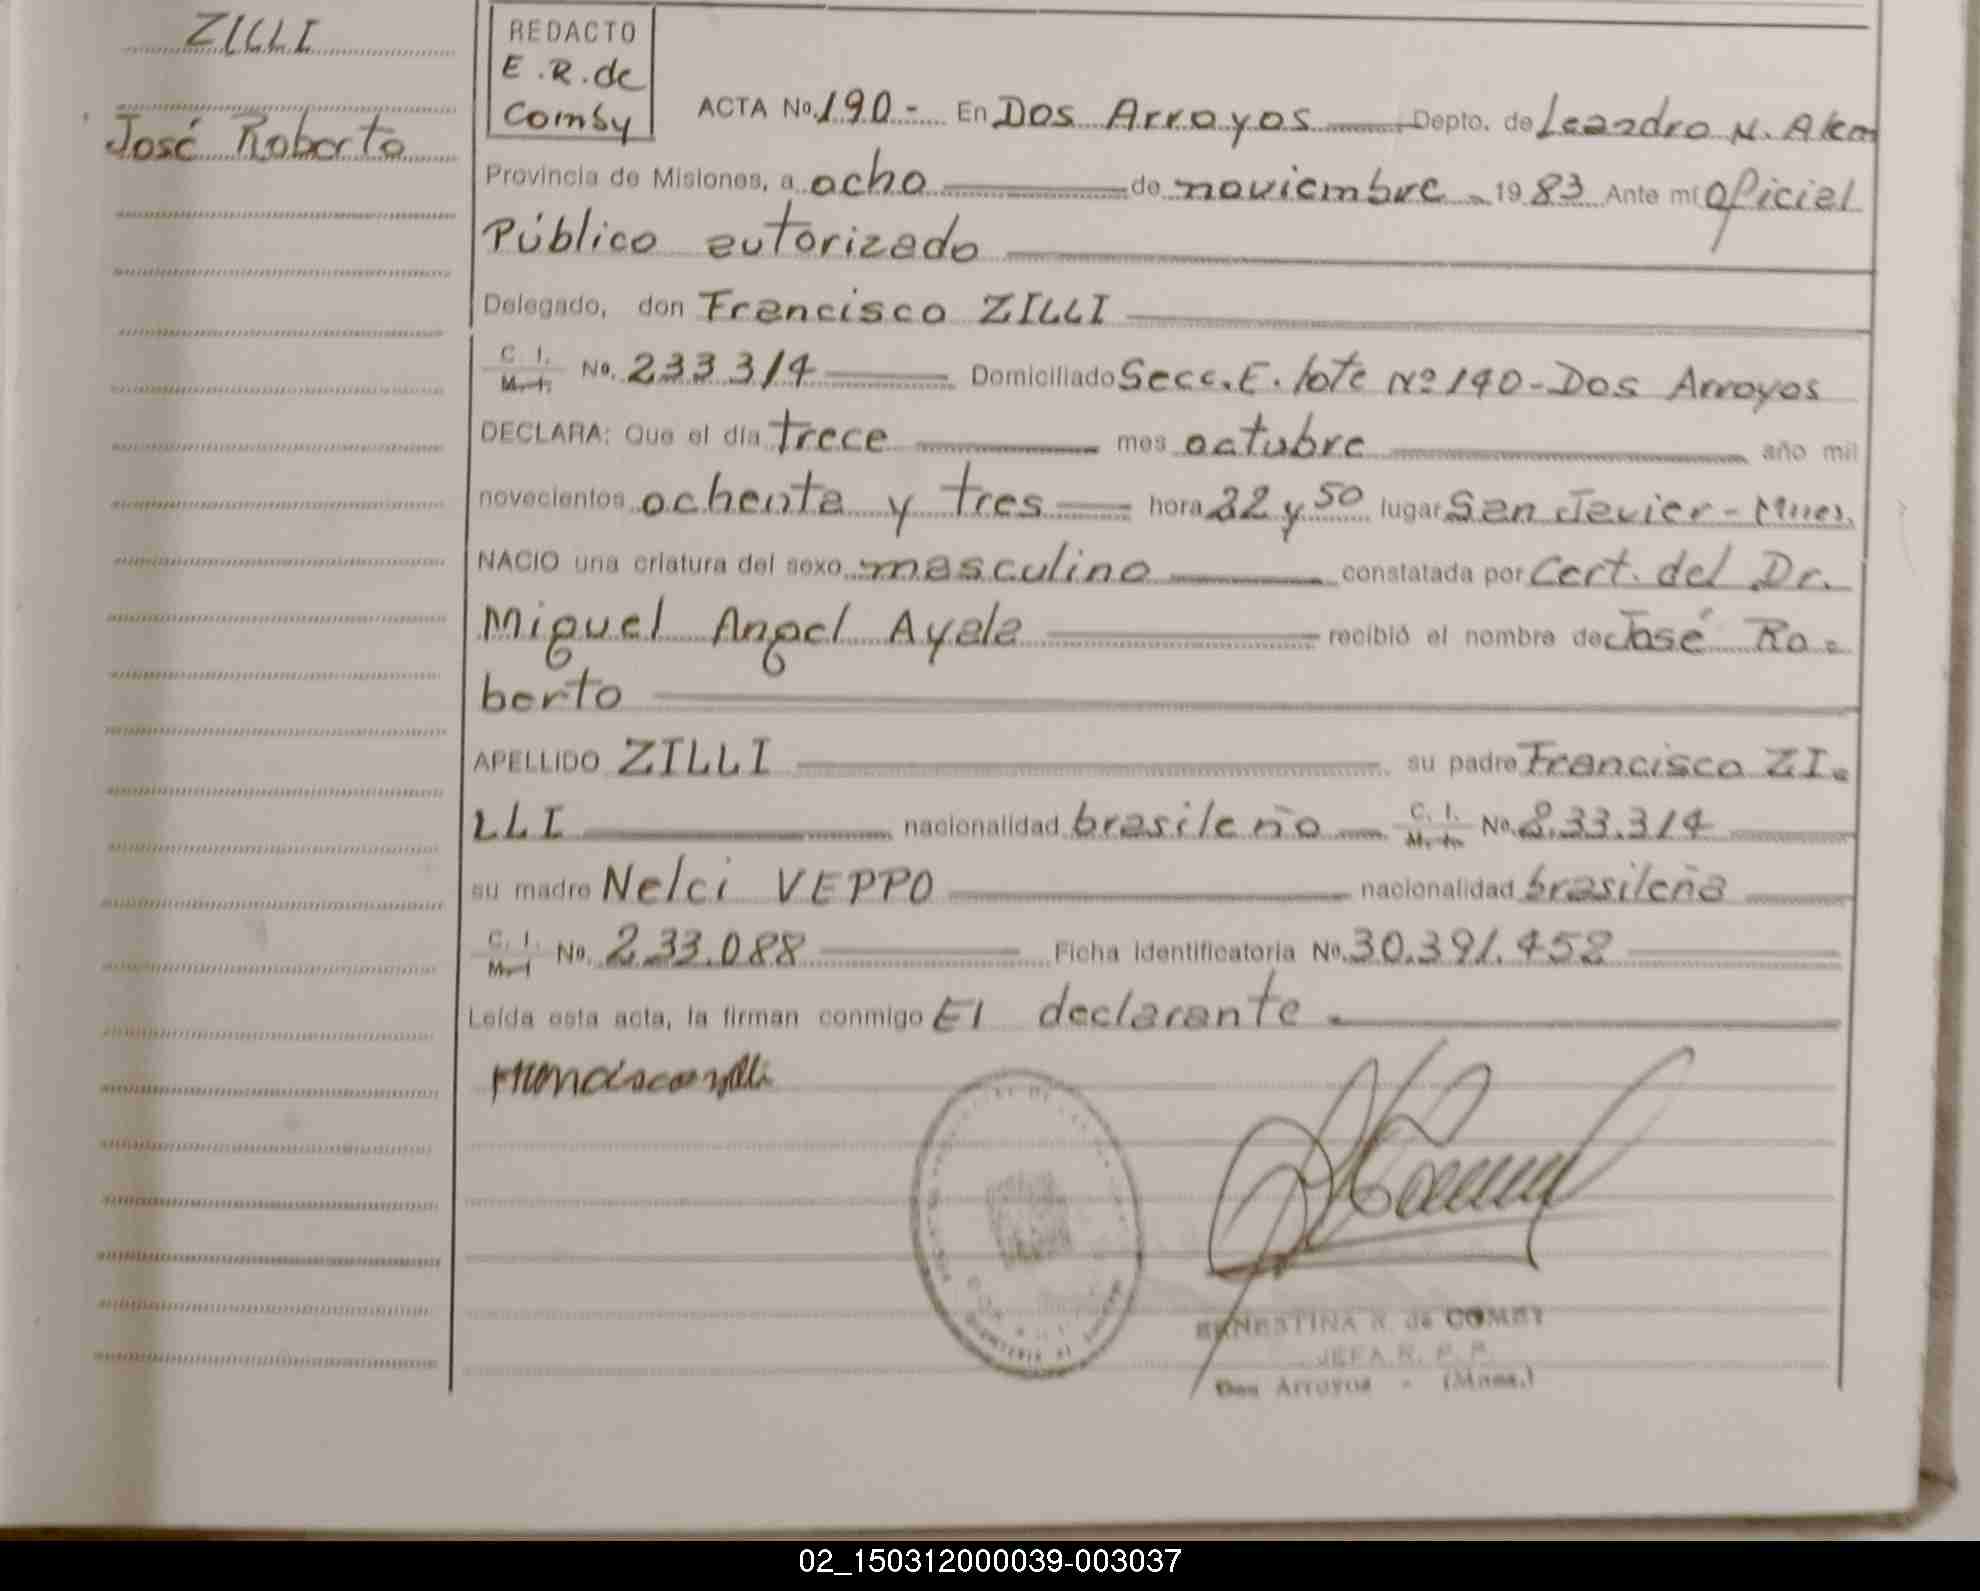 ZILLI
José Roberto
REDACTO
E.R.de
Comby
ACTA No. 190- En Dos Arroyos Depto. de Leandro N. Alem
Provincia de Misiones, a ocho de noviembre 1983 Ante mí oficial
Público autorizado
Delegado, don Francisco ZILLI
C. I. M. I. No. 233314 Domiciliado Secc. E. lote Nº 190-Dos Arroyos
DECLARA: Que el día trece mes octubre año mil
novecientos ochenta y tres hora 22 y 50 lugar San Javier - Mnes.
NACIO una criatura del sexo masculino constatada por Cert. del Dr.
Miguel Angel Ayala recibió el nombre de José Ro-
berto
APELLIDO ZILLI su padre Francisco ZI-
LLI nacionalidad brasileño C. I. M. I. No. 233.314
su madre Nelci VEPPO nacionalidad brasileña
C. I. M. I. No. 233.088 Ficha identificatoria No. 30.391.452
Leída esta acta, la firman conmigo El declarante.
Francisco Zilli
ERNESTINA R. de COMBY
JEFA R. P. P.
Dos Arroyos - (Mnes.)
02_150312000039-003037